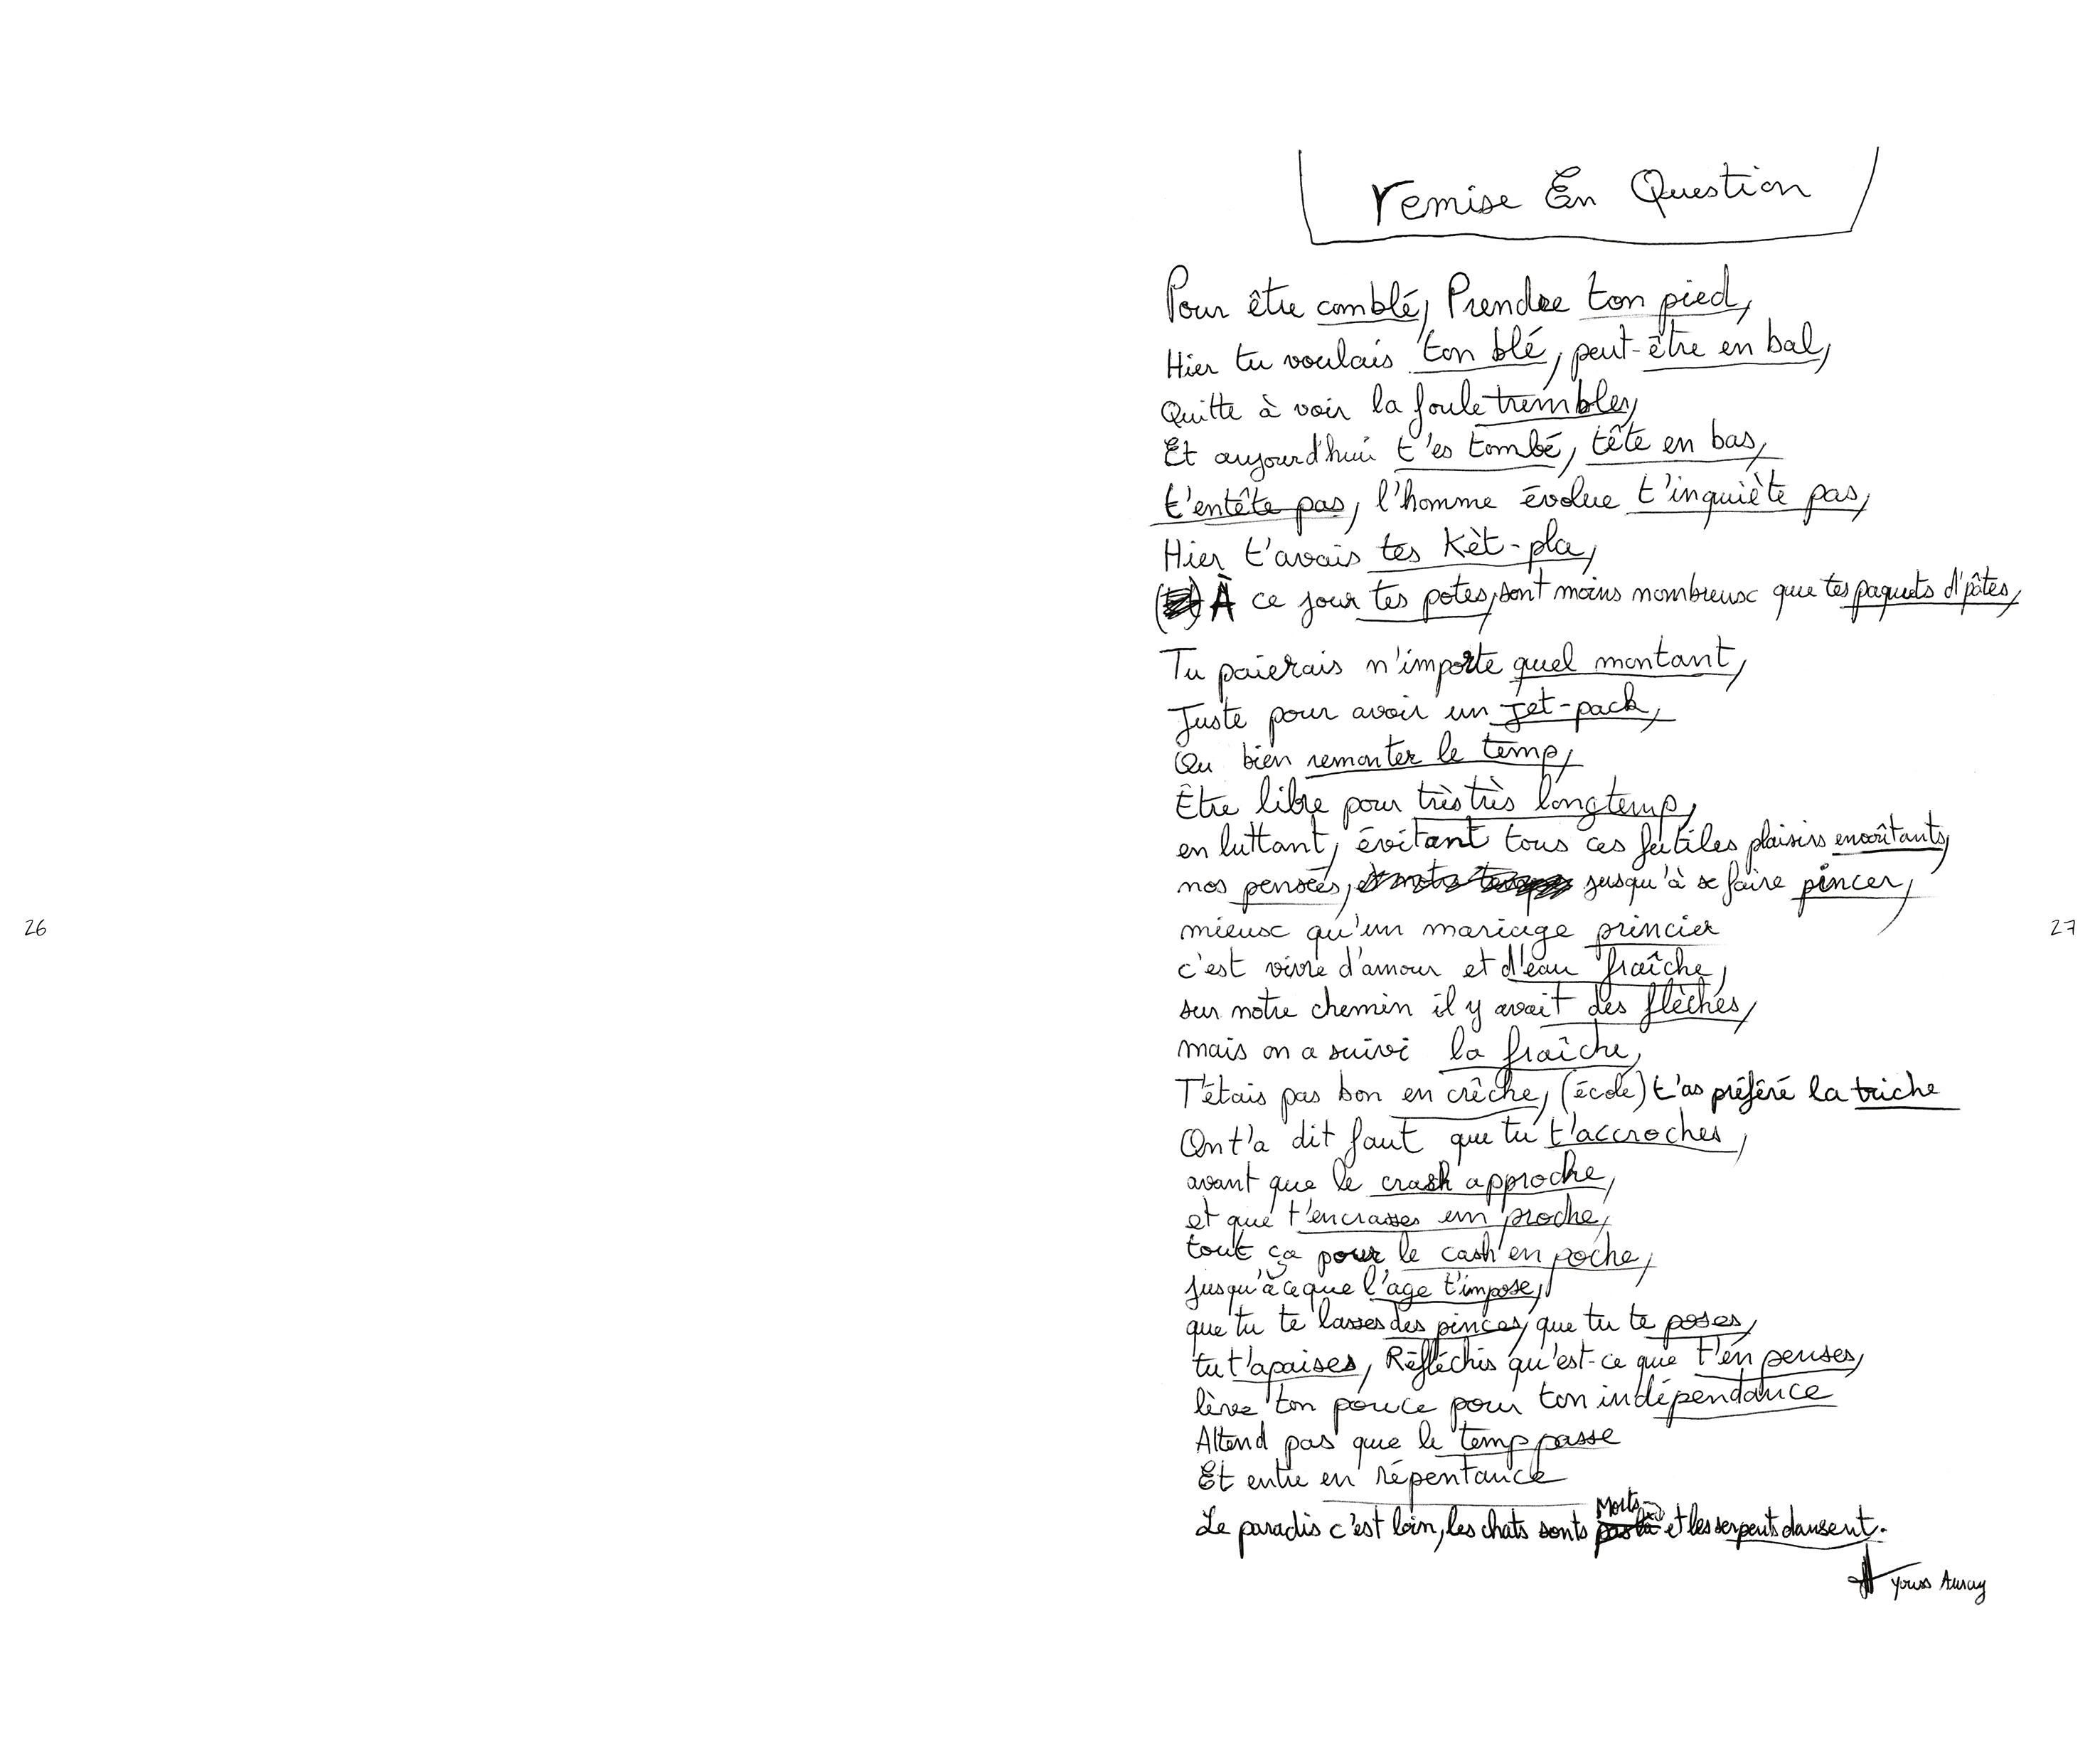 remise En Question
Pour être comblé, Prendre ton pied,
Hier tu voulais ton blé, peut-être en bal,
Quitte à voir la foule trembler,
Et aujourd'hui t'es tombé, tête en bas,
t'entête pas, l'homme évolue t'inquiète pas,
Hier t'avais tes Kèt-pla,
À ce jour tes potes, sont moins nombreux que tes paquets d'pâtes,
Tu paierais n'importe quel montant,
Juste pour avoir un jet-pack,
Ou bien remonter le temp,
Être libre pour très très longtemp,
en luttant, évitant tous ces futiles plaisirs envoûtants,
nos pensées, jusqu'à se faire pincer,
mieux qu'un mariage princier
c'est vivre d'amour et d'eau fraîche,
sur notre chemin il y avait des flèches,
mais on a suivi la fraîche,
T'étais pas bon en crêche, (école) t'as préféré la triche
On t'a dit faut que tu t'accroches,
avant que le crash approche,
et que t'encrasses un proche,
tout ça pour le cash en poche,
jusqu'à ce que l'age t'impose,
que tu te lasses des pinces, que tu te poses,
tu t'apaises, Réfléchis qu'est-ce que t'en penses,
lève ton pouce pour ton indépendance
Attend pas que le temp passe
Et entre en répentance
Le paradis c'est loin, les chats sonts Morts et les serpents dansent.
Youss Auray
26
27